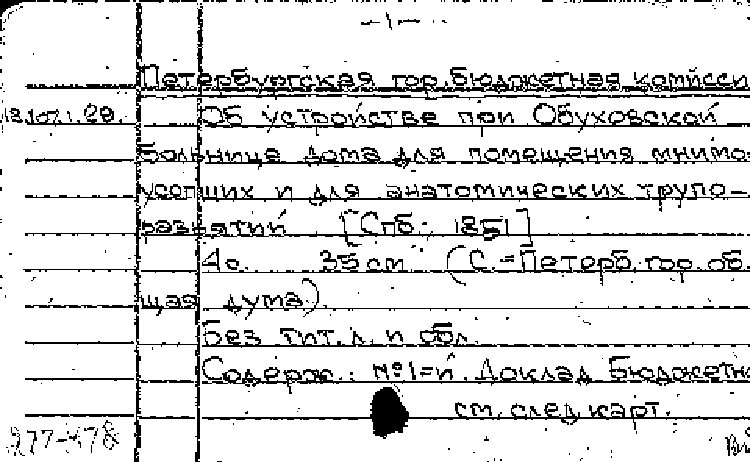 — 1 —
Петербургская гор. бюджетная комисси
18.107.1.29. Об устройстве при Обуховской
больнице дома для помещения мнимо-
усопших и для анатомических трупо-
разнятий [Спб., 1851]
4 с. 35 см (С.-Петерб. гор. об-
щая дума).
Без тит. л. и обл.
Содерж.: №1-й. Доклад Бюджетн
см. след. карт.
277-478